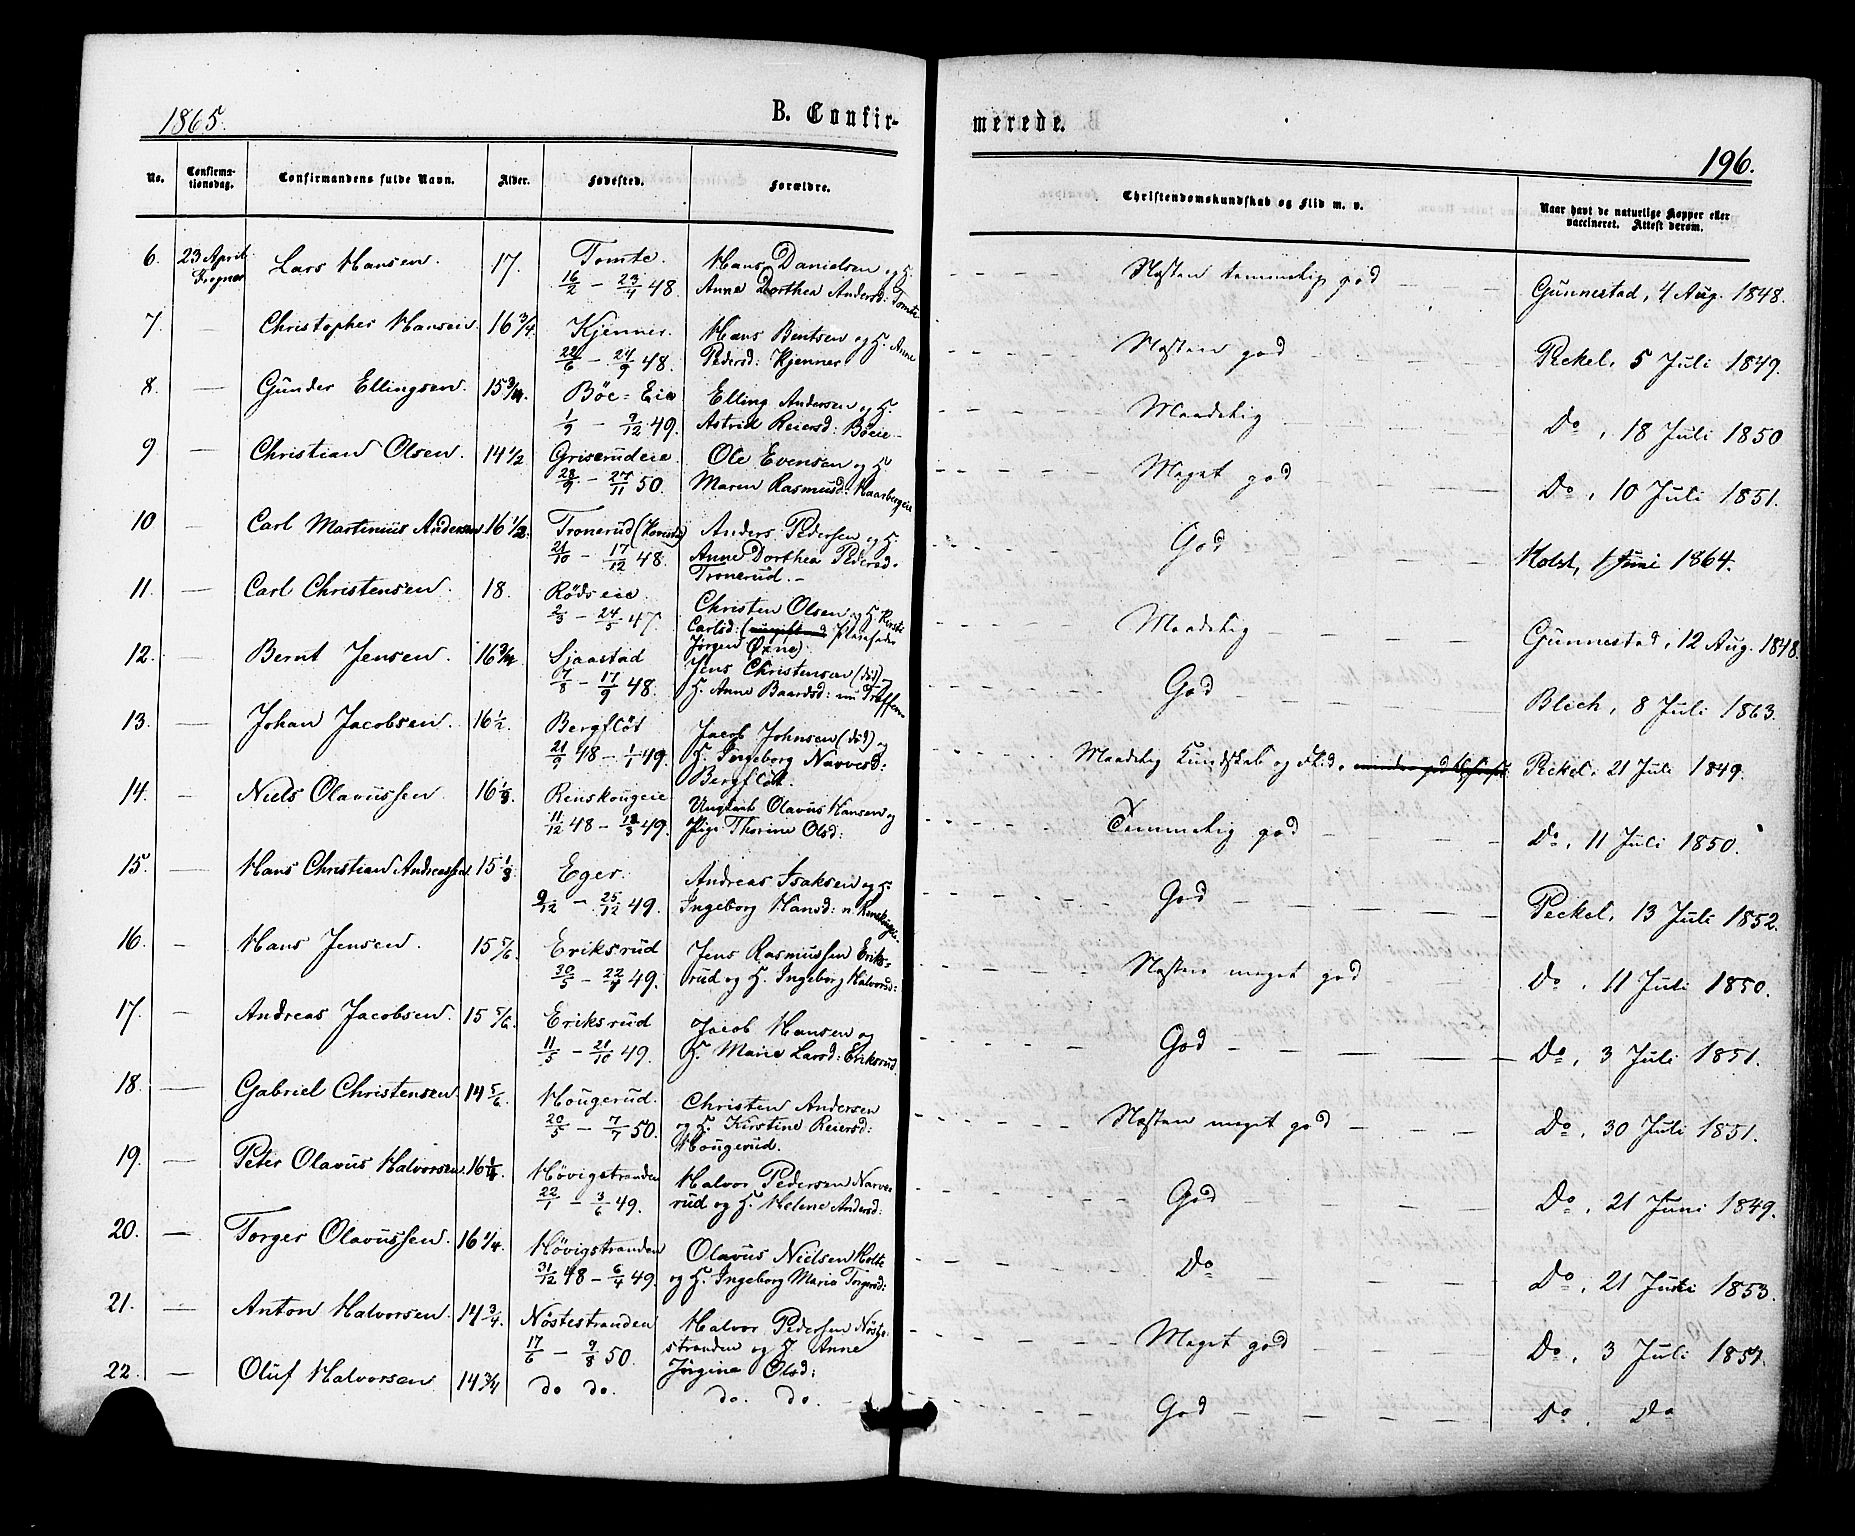 1865.
B. Confir-
merede.
196.
No.
Confirma-
tionsdag.
Confirmandens fulde Navn.
Alder.
Fødested.
Forældre.
Christendomskundskab og Flid m. v.
Naar havt de naturlige Kopper eller
vaccineret. Attest derom.
6. 23 April Lars Hansen. 17. Tomte. Hans Danielsen og H. Næsten temmelig god Gunnestad, 4 Aug. 1848.
16/2 - 23/4 48. Anne Dorthea Andersd: Tomte
7. Christopher Hansen. 16 3/4. Kjenner. Hans Bentsen og H. Anne Næsten god Peckel, 5 Juli 1849.
22/6 - 24/9 48. Pedersd: Kjenner
8. Gunder Ellingsen. 15 3/4. Böe=Eie Elling Andersen og H. Maadelig Do, 18 Juli 1850
1/9 - 9/12 49. Astrid Reiersd: Böeie
9 Christian Olsen. 14 1/2 Griserudeie. Ole Evensen og H. Meget god Do, 10 Juli 1851.
28/9 - 27/11 50. Maren Rasmusd: Haarbergeie
10 Carl Martinius Andersen 16 1/2. Tronerud Anders Pedersen og H. God Holst, 1 Juni 1864.
21/10 - 17/12 48. Anne Dorthea Pedersd.
Tronerud.
11. Carl Christensen. 18. Rödseie. Christen Olsen og H. Kirsti Maadelig Gunnestad, 12 Aug. 1848.
2/3 - 24/5 47. Carlsd:
Jörgen Oxne)
12. Bernt Jensen. 16 3/4 Sjaastad Jens Christensen (död) og God Blich, 8 Juli 1863.
7/8 - 17/9 48. H. Anne Baardsd: nu
13. Johan Jacobsen. 16 1/2. Bergflöt Jacob Johnsen (död) og Maadelig Kundskab og Flid, Peckel, 21 Juli 1849.
21/9 48 - 1/1 49. H. Ingeborg Narvesd:
Bergflöt.
14. Niels Olavussen. 16 1/3. Renskougeie Ungkarl Olavus Hansen og Temmelig god Do, 11 Juli 1850.
11/12 48 - 18/3 49. Pige Thorine Olsd:
15. Hans Christian Andreassen 15 1/3. Eger. Andreas Isaksen og H. God Peckel, 13 Juli 1852.
9/12 - 25/12 49. Ingeborg Hansd:
16. Hans Jensen. 15 5/6. Eriksrud Jens Rasmussen Eriks- Næsten meget god Do, 11 Juli 1850.
30/5 - 22/7 49. rud og H. Ingeborg Halvorsd:
17. Andreas Jacobsen. 15 5/6. Eriksrud Jacob Hansen og God Do, 3 Juli 1851.
11/5 - 21/10 49. H. Marie Larsd: Eriksrud.
18. Gabriel Christensen. 14 5/6. Hougerud. Christen Andersen Næsten meget god Do, 30 Juli 1851.
20/5 - 7/7 50. og H. Kirstine Reiersd:
Hougerud.
19. Peter Olavus Halvorsen. 16 1/4. Hövigstranden Halvor Pedersen Narve- God Do, 21 Juni 1849.
22/1 - 3/6 49. rud og H. Helene Andersd:
20. Torger Olavussen. 16 1/4. Hövigstranden Olavus Nielsen Holte Do Do, 21 Juli 1853.
31/12 48 - 6/4 49. og H. Ingeborg Maria Torgersd:
21. Anton Halvorsen. 14 3/4. Nöstestranden Halvor Pedersen Nöste- Meget god Do, 3 Juli
17/6 - 9/8 50. stranden og H. Anne
Jörgine Olsd:
22. Oluf Halvorsen 14 3/4 do do. do. do. God Do. Do